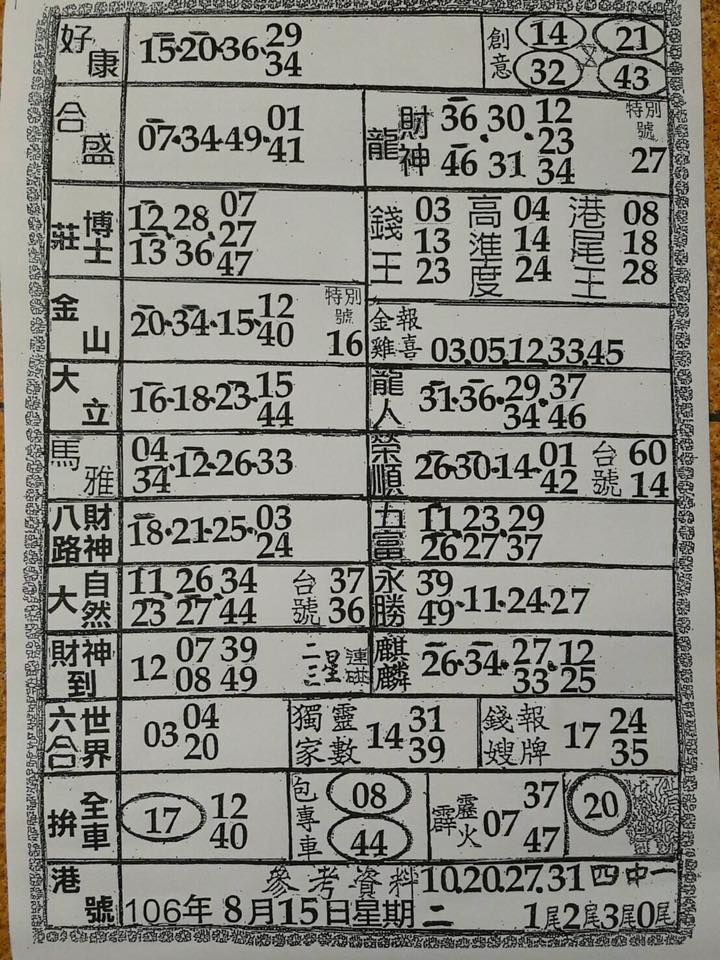 好康 15·20·36·29 34
創意 14 21 32 43
合盛 07·34·49·01 41
龍 財神 36·30·12 23 46·31·34 特別號 27
莊 博士 12·28·07 27 13·36·47
錢王 03 13 23 高進度 04 14 24 港尾王 08 18 28
金山 20·34·15·12 40 特別號 16
金雞報喜 03.05.12.33.45
大立 16·18·23·15 44
龍人 31·36·29·37 34·46
馬雅 04 34·12·26·33
榮順 26·30·14·01 42 台號 60 14
八路財神 18·21·25·03 24
五富 11.23.29 26 27 37
大自然 11.26.34 23 27 44 台號 37 36
永勝 39 49·11·24·27
財神到 12 07 39 08 49 二三星 連碰
麒麟 26·34·27·12 33 25
六合世界 03 04 20
獨家靈數 14 31 39
錢嫂報牌 17 24 35
拚全車 17 12 40
包專車 08 44
霹靈火 07 37 47
20
港號 參考資料 10.20.27.31 四中一
106年8月15日星期二 1尾2尾3尾0尾